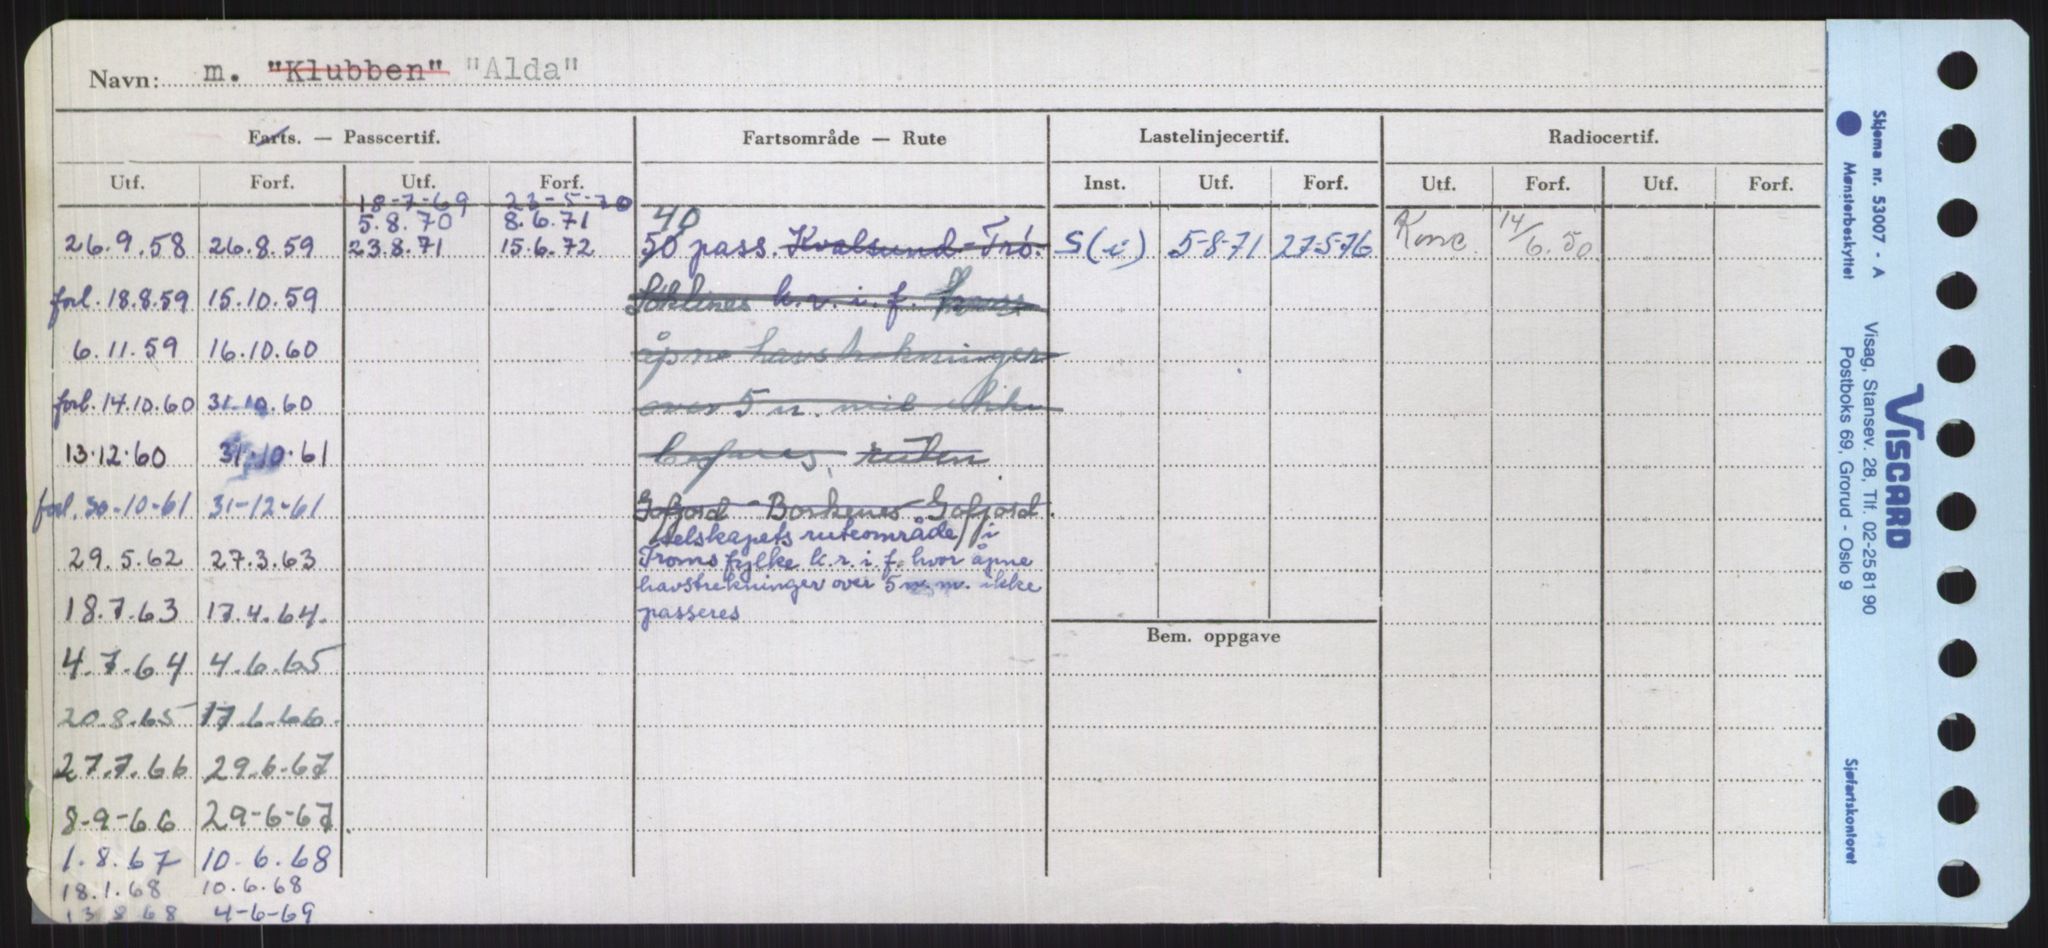 Navn: m. "Klubben" "Alda"
Farts. — Passcertif. Fartsområde — Rute Lastelinjecertif. Radiocertif.
Utf. Forf. Utf. Forf. Inst. Utf. Forf. Utf. Forf. Utf. Forf.
18-7-69 23-5-70
5.8.70 8.6.71 40
26.9.58 26.8.59 23.8.71 15.6.72 50 pass. Kvalsund - Trö. S(i) 5-8-71 27-5-76 Konc. 14/6.50
forl. 18.8.59 15.10.59 k.r.i.f.
6.11.59 16.10.60 åpne havstrekninger
forl. 14.10.60 31.10.60 over 5 n. mil ikke
13.12.60 31.10.61 ruten
forl. 30-10-61 31-12-61 Gofjord - Borkenes Gofjord.
selskapets ruteområde i
29.5.62 27.3.63 Troms fylke k.r.i.f. hvor åpne
havstrekninger over 5 n. m. ikke
18.7.63 17.4.64. passeres
Bem. oppgave
4.7.64 4.6.65
20.8.65 17.6.66.
27.7.66 29.6.67
8-9-66 29-6-67.
1.8.67 10.6.68
18.1.68 10.6.68
13 8 68 4-6-69
Skjema nr. 53007 - A
Mønsterbeskyttet
VISCARD
Visag, Stansev. 28, Tlf. 02-25 81 90
Postboks 69, Grorud - Oslo 9
Sjøfartskontoret